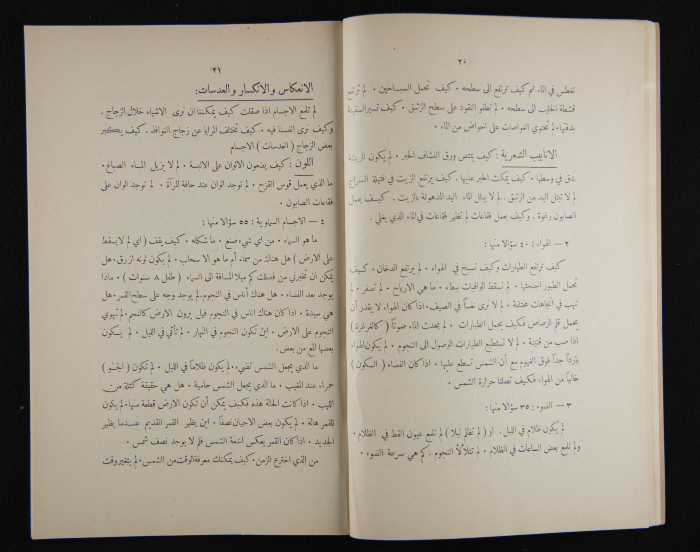 ٣٠
تغطس في الماء ثم كيف ترتفع الى سطحه ٠ كيف تحمل السباحين ٠ لم ترتفع
قشطة الحليب الى سطحه ٠ لم تطفو النقود على سطح الزئبق ٠ كيف تسير السفينة
بدفتها ٠ لم تحتوي الغواصات على احواض من الماء ٠
الانابيب الشعرية : كيف يمتص ورق النشاف الحبر ٠ لم يكون للريشة
شق في وسطها ٠ كيف يمكث الحبر عليها ٠ كيف يرتفع الزيت في فتيلة السراج
لم لا تبتل اليد من الزئبق ٠ لم لا يبلل الماء اليد المدهونة بالزيت ٠ كيف يعمل
الصابون رغوة ٠ وكيف يعمل فقاعات لم تظهر فقاعات في الماء الذي يغلي ٠
٢ – الهواء : ٤٠ سؤالا منها :
كيف ترتفع الطيارات وكيف تسبح في الهواء ٠ لم يرتفع الدخان ٠ كيف
تحمل الطيور اجنحتها ٠ لم تسقط الواقيات ببطء ٠ ما هي الارياح ٠ لم تصفر ٠ لم
تهب في اتجاهات مختلفة ٠ لم لا نرى نفسنا في الصيف ٠ اذا كان الهواء لا يقدر أن
يحمل قلم الرصاص فكيف يحمل الطيارات ٠ لم يحدث الماء صوتاً ( كالغرغرة )
اذا صب من قنينة ٠ لم لا تستطيع الطيارات الوصول الى النجوم ٠ لم يكون الهواء
بارداً جداً فوق الغيوم مع أن الشمس تسطع عليها ٠ اذا كان الفضاء ( السكون )
خالياً من الهواء فكيف تصلنا حرارة الشمس ٠
٣ – الضوء : ٣٥ سؤالا منها :
لم يكون ظلام في الليل ٠ او ( لم تظلم ليلا ) لم تلمع عيون القط في الظلام ٠
ولم تلمع بعض الساعات في الظلام ٠ لم تتلألأ النجوم ٠ كم هي سرعة الضوء ٠
٣١
الانعكاس والانكسار والعدسات :
لم تلمع الاجسام اذا صقلت كيف يمكننا ان نرى الاشياء خلال الزجاج ٠
وكيف نرى انفسنا فيه ٠ كيف تختلف المرايا عن زجاج النوافذ ٠ كيف يكبر
بعض الزجاج ( العدسات ) الاجسام
اللون : كيف يضعون الالوان على الالبسة ٠ لم لا يزيل الماء الصباغ ٠
ما الذي يعمل قوس القزح ٠ لم توجد الوان عند حافة المرآة ٠ لم توجد الوان على
فقاعات الصابون ٠
٤ – الاجسام السماوية : ٥٥ سؤالا منها :
ما هو السماء ٠ من اي شيء صنع ٠ ما شكله ٠ كيف يقف ( اي لم لا يسقط
على الارض ) هل هناك من سماء أم ما هو الا سحاب ٠ لم يكون لونه ازرق ٠ هل
يمكن ان تخبرني من فضلك كم ميلا المسافة الى السماء ( طفل ٨ سنوات ) ٠ ماذا
يوجد بعد الفضاء ٠ هل هناك أناس في النجوم ٠ لم يوجد وجه على سطح القمر ٠ هل
هي سيدة ٠ اذا كان هناك اناس في النجوم فهل يرون الارض كالنجم ٠ لم تهوي
النجوم على الارض ٠ اين تكون النجوم في النهار ٠ لم تأتي في الليل ٠ لم يكون
بعضها المع من بعض ٠
ما الذي يجعل الشمس تضيء ٠ لم يكون ظلاماً في الليل ٠ لم تكون ( الجو )
حمراء عند المغيب ٠ ما الذي يجعل الشمس حامية ٠ هل هي حقيقة كتلة من
اللهب ٠ اذا كانت الحالة هذه فكيف يمكن أن تكون الارض قطعة منها ٠ لم يكون
للقمر هالة ٠ لم يكون بعض الاحيان نصفاً ٠ اين يظهر القمر القديم عندما يظهر
الجديد ٠ اذا كان القمر يعكس اشعة الشمس فلم لا يوجد نصف شمس ٠
من الذي اخترع الزمن ٠ كيف يمكنك معرفة الوقت من الشمس ٠ لم يتغير وقت